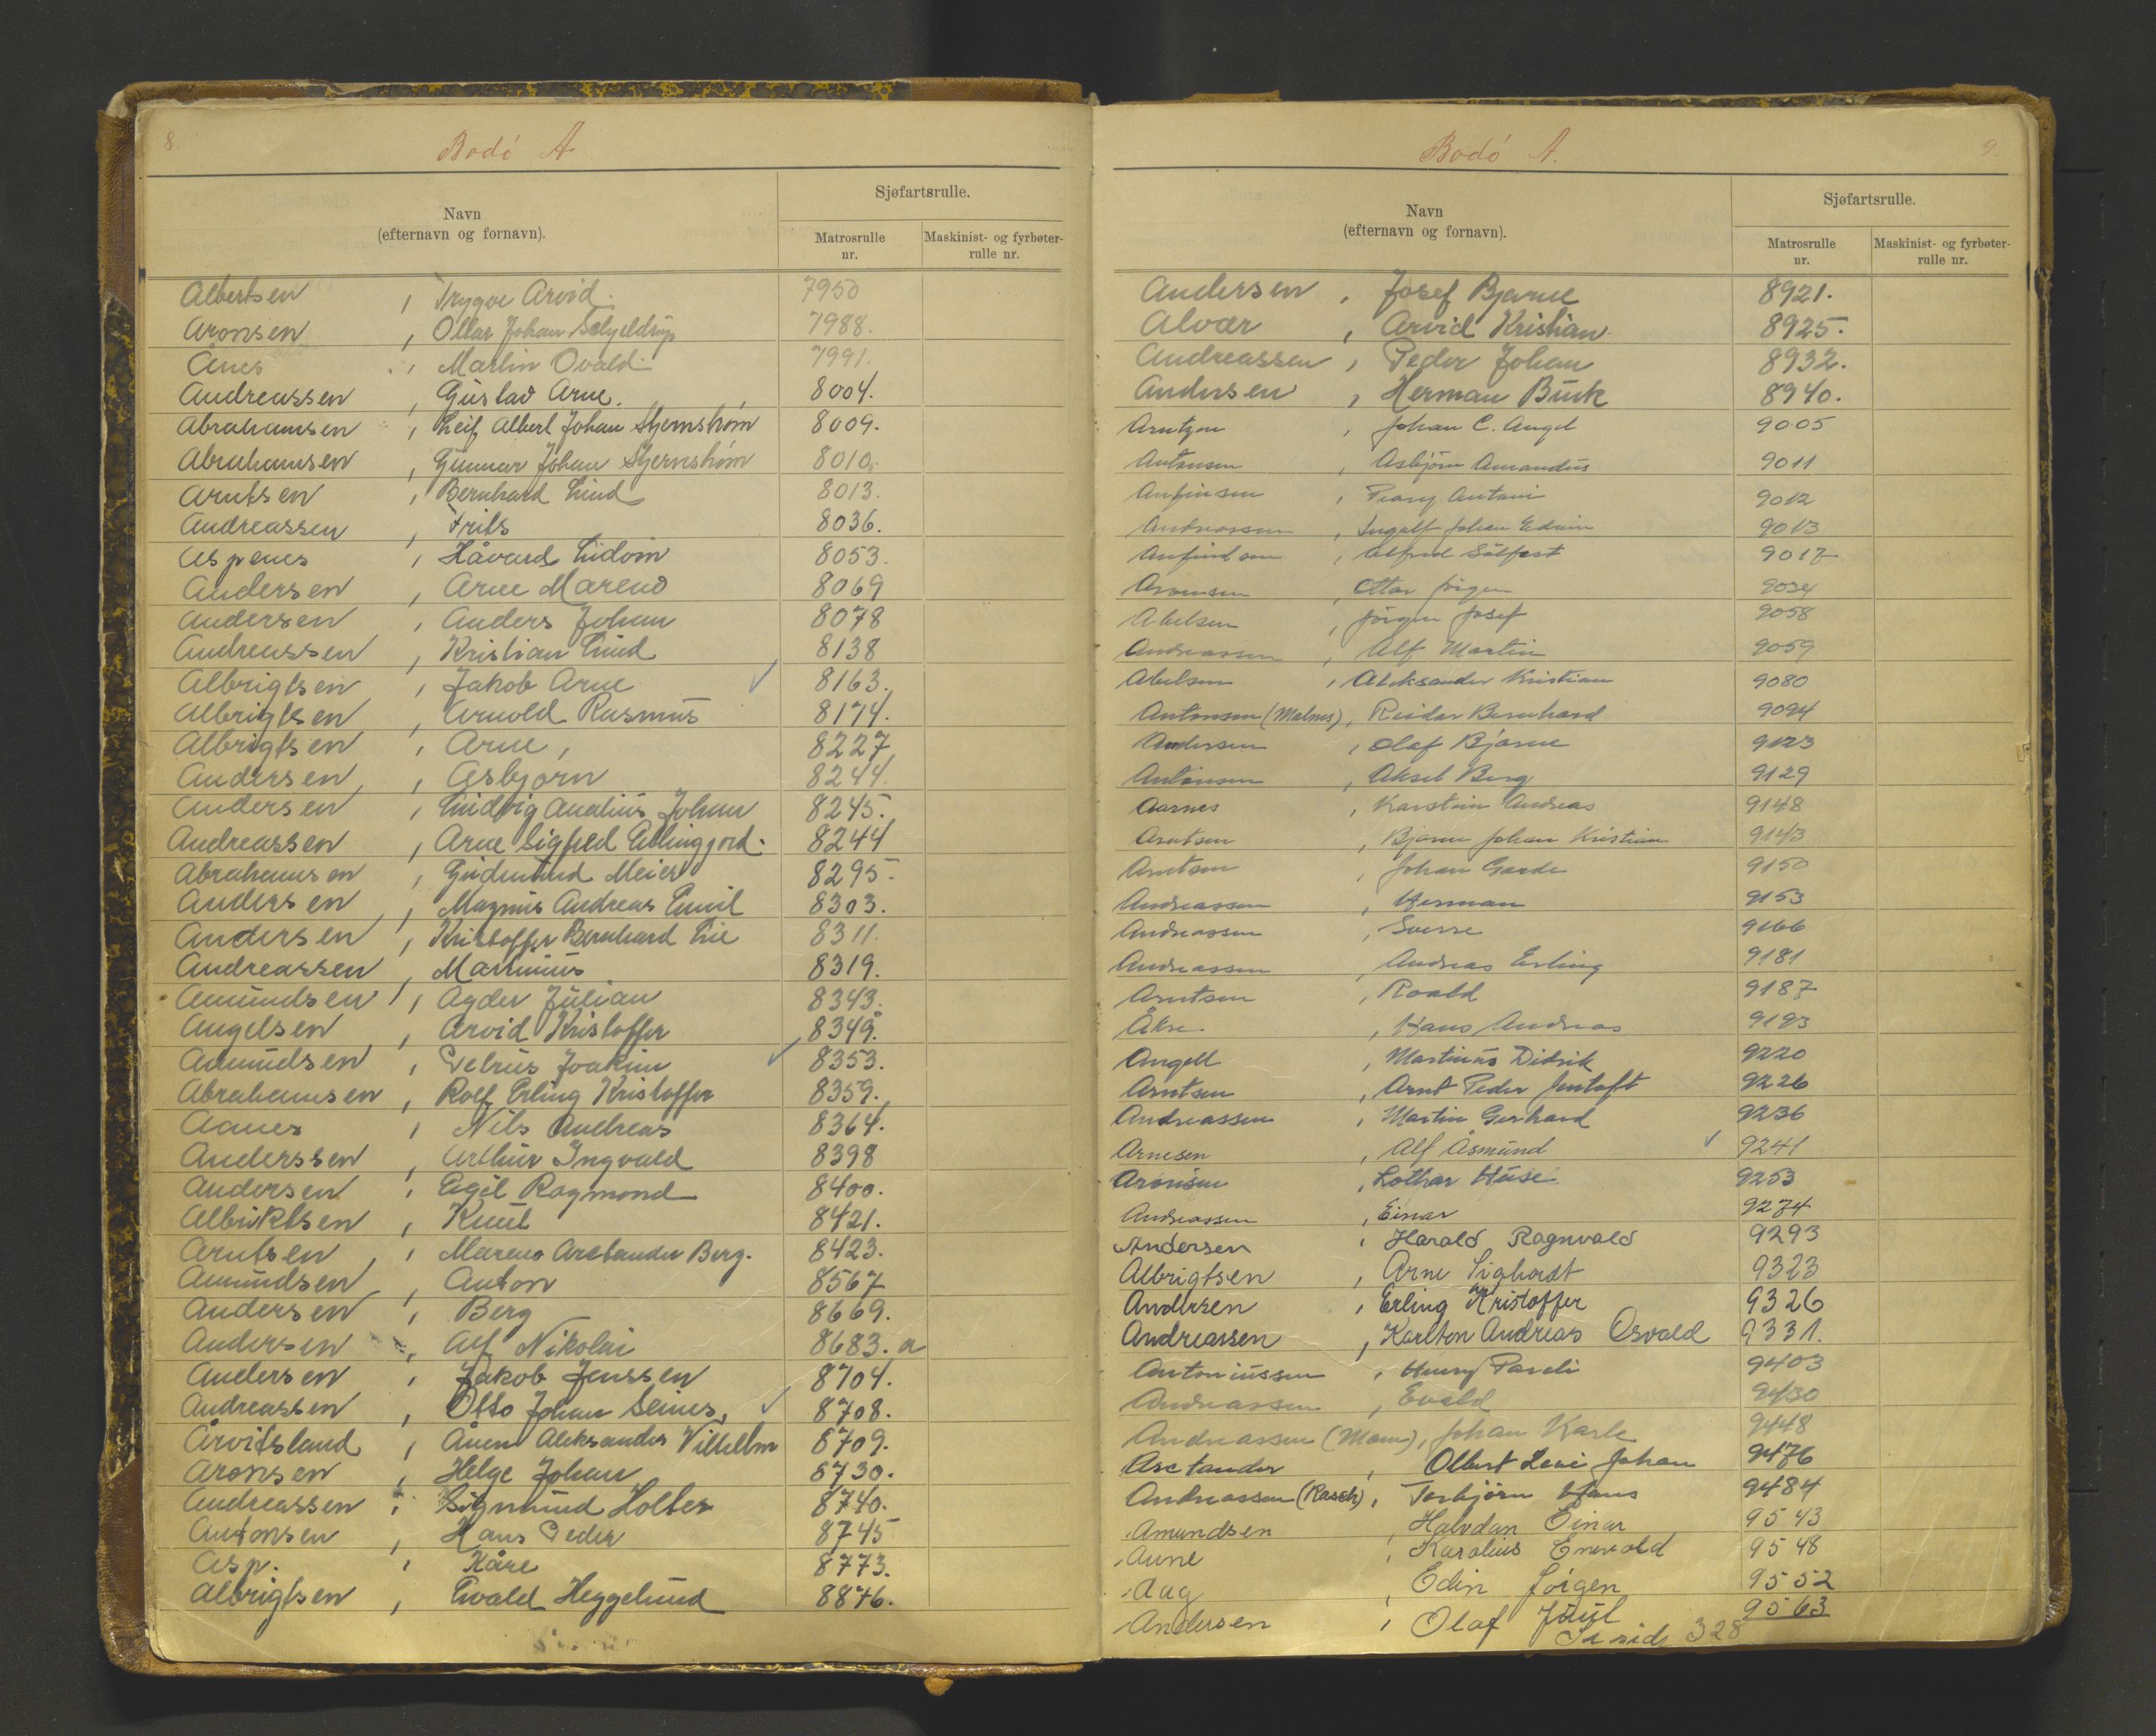 8.
Bodó A
Navn
(efternavn og fornavn).
Sjøfartsrulle.
Matrosrulle
nr.
Maskinist- og fyrbøter-
rulle nr.
Albertsen , Trygve Arvid. 7950
Aronsen , Ottar Johan Schjeldrup 7988.
Anes , Martin Ovald 7991.
Andreassen , Gustav Arne. 8004.
Abrahamsen , Leif Albert Johan Stjernstrøm 8009.
Abrahamsen , Gunnar Johan Stjernstrøm 8010.
Arntsen , Bernhard Lind 8013.
Andreassen , Frits 8036.
Aspenes , Håvard Ludvin 8053.
Andersen , Arne Mareno 8069
Andersen , Anders Johan 8078
Andreassen , Kristian Lind 8138
Albrigtsen , Jakob Arne ✓ 8163.
Albrigtsen , Arnold Rasmus 8174.
Albrigtsen , Arne, 8227
Andersen , Asbjørn 8244.
Andersen , Ludvig Analius Johan 8245.
Andreassen , Arne Sigfred Ellinggard. 8244
Abrahamsen , Gudmund Meier 8295.
Andersen , Magnus Andreas Emil 8303.
Andersen , Kristoffer Bernhard Lie 8311.
Andreassen , Martinius 8319.
Amundsen , Agder Julian 8343.
Angelsen , Arvid Kristoffer 8349.
Amundsen , Petrus Joakim ✓ 8353.
Abrahamsen , Rolf Erling Kristoffer 8359.
Aanes , Nils Andreas 8364.
Anderssen , Arthur Ingvald 8398
Andersen , Egil Ragmond 8400.
Albriktsen , Knut 8421.
Arntsen , Mareno Arctander Berg. 8423.
Amundsen , Anton 8567
Andersen , Berg 8669.
Andersen , Alf Nikolai 8683. a
Andersen , Jakob Jenssen 8704.
Andreassen , Otto Johan Seines, ✓ 8708.
Årvitsland , Ånen Aleksander Vilhelm 8709.
Aronsen , Helge Johan 8730.
Andreassen , Sigmund Holter 8740.
Antonsen , Hans Peder 8745
Asp. , Kåre 8773.
Albrigtsen , Evald Heggelund 8876.
Bodó A.
9.
Navn
(efternavn og fornavn).
Sjøfartsrulle.
Matrosrulle
nr.
Maskinist- og fyrbøter-
rulle nr.
Andersen , Josef Bjarne 8921.
Alvær , Arvid Kristian 8925.
Andreassen , Peder Johan 8932.
Andersen , Herman Buck 8940.
Arntzen , Johan C. Angel 9005
Antonsen , Asbjørn Amandus 9011
Anfinsen , Peary Antoni 9012
Andreassen , Ingolf Johan Edvin 9013
Anfindsen , Alfred Sölfest 9017
Aronsen , Ottar Jörgen 9034
Abelsen , Jörgen Josef 9058
Andreassen , Alf Martin 9059
Abelsen , Aleksander Kristian 9080
Antonsen (Malnes), Reidar Bernhard 9094
Anderssen , Olaf Bjarne 9123
Antonsen , Aksel Berg 9129
Aarnes , Karstein Andreas 9148
Arntsen , Bjarne Johan Kristian 9143
Arntsen , Johan Garde 9150
Andreassen , Herman 9153
Andreassen , Sverre 9166
Andreassen , Andreas Erling 9181
Arntsen , Roald 9187
Åkre , Hans Andreas 9193
Angell , Martinus Didrik 9220
Arntsen , Arnt Peder Jentoft 9226
Andreassen , Martin Gerhard 9236
Arnesen , Alf Åsmund ✓ 9241
Aronsen , Lothar Huse 9253
Andreassen , Einar 9274
Andersen , Harald Ragnvald 9293
Albrigtsen , Arne Sighardt 9323
Andersen , Erling Kristoffer 9326
Andreassen , Karlton Andreas Osvald 9331.
Antoniussen , Henry Pareli 9403
Andreassen , Evald 9430
Andreassen (Moen), Johan Karle 9448
Arctander , Olbert Levi Johan 9476
Andreassen (Rasch), Torbjörn Hans 9484
Amundsen , Halvdan Einar 9543
Aune , Karolius Enevold 9548
Aag , Edin Jörgen 9552
Andersen , Olaf Juul 9563
Se side 328